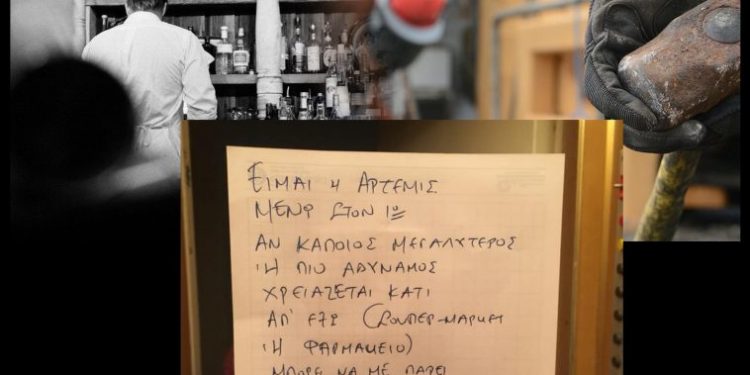 ΕΙΜΑΙ Η ΑΡΤΕΜΙΣ
ΜΕΝΩ ΣΤΟΝ 1ο
ΑΝ ΚΑΠΟΙΟΣ ΜΕΓΑΛΥΤΕΡΟΣ
Ή ΠΙΟ ΑΔΥΝΑΜΟΣ
ΧΡΕΙΑΖΕΤΑΙ ΚΑΤΙ
ΑΠ' ΕΞΩ (ΣΟΥΠΕΡ-ΜΑΡΚΕΤ
Ή ΦΑΡΜΑΚΕΙΟ)
ΜΠΟΡΕΙ ΝΑ ΜΕ ΠΑΡΕΙ